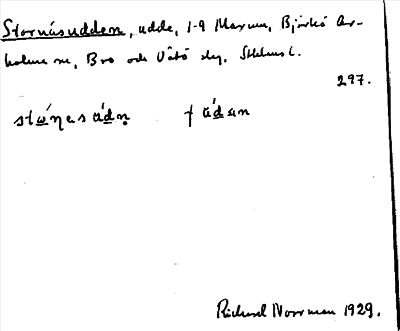 Stornäsuddem, udde, 1-9 Marum, Björkö Ar-
holma sn, Bro och Vätö skg, Sthlms l.
297.
stώŋesúdṇ † údan
Richard Norrman 1929.